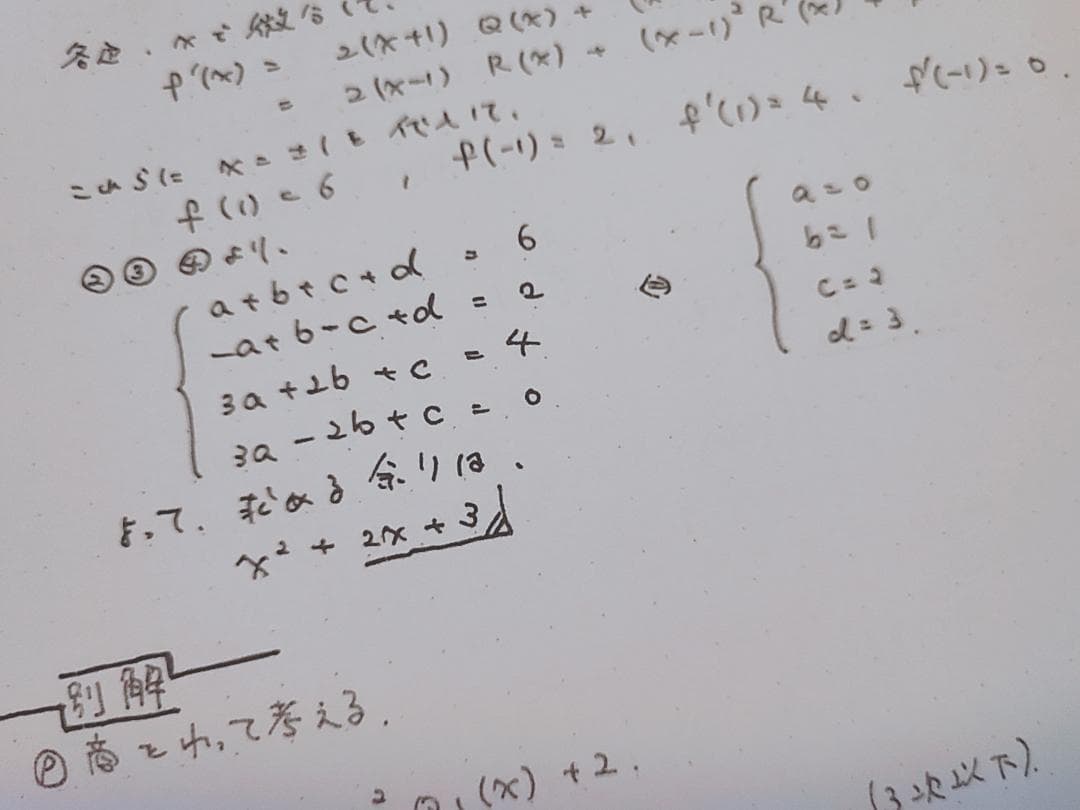 各辺、xで微分して、
f'(x) = 2(x+1) Q(x) +
= 2(x-1) R(x) + (x-1)² R'(x) +
これらに x = ±1 を 代入して、
f(1) = 6 , f(-1) = 2, f'(1) = 4 、 f'(-1) = 0 .
②③④より、
a+b+c+d = 6
-a+b-c+d = 2
3a+2b+c = 4
3a-2b+c = 0
⇔
a=0
b=1
c=2
d=3.
よって、求める余りは、
x² + 2x + 3
別解
Ⓟ 商をわって考える.
(x) + 2 .
(3次以下).